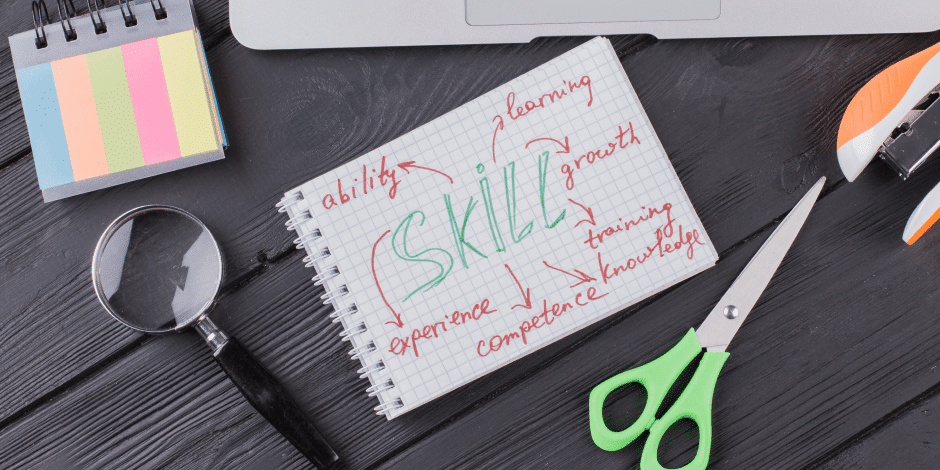 learning
ability
growth
skill
training
knowledge
experience
competence